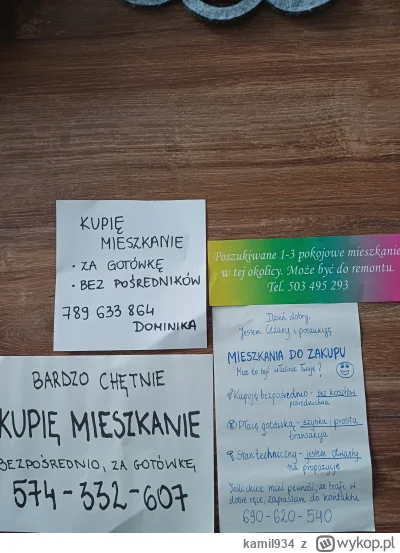 KUPIĘ
MIESZKANIE
• ZA GOTÓWKĘ
• BEZ POŚREDNIKÓW
789 633 864
DOMINIKA
Poszukiwane 1-3 pokojowe mieszkanie
w tej okolicy. Może być do remontu.
Tel. 503 495 293
BARDZO CHĘTNIE
KUPIĘ MIESZKANIE
BEZPOŚREDNIO, ZA GOTÓWKĘ
574-332-607
Dzień dobry,
Jestem Cezary i poszukuję
MIESZKANIA DO ZAKUPU
Może to być właśnie Twoje?
Kupuję bezpośrednio - bez kosztów
pośrednictwa
Płacę gotówką - szybka i prosta
transakcja
Stan techniczny - jestem otwarty
na propozycje
Jeśli chcesz mieć pewność, że trafi w
dobre ręce, zapraszam do kontaktu
690-620-540
kamil934 z wykop.pl